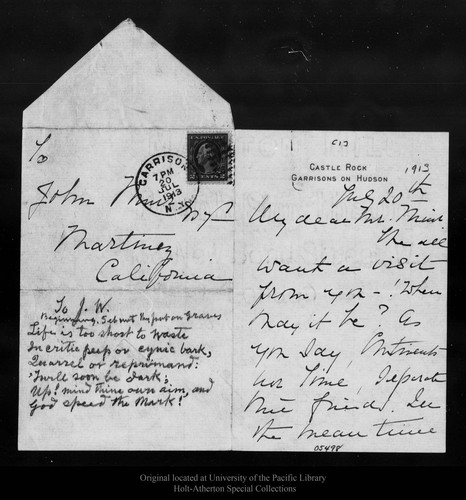 To
John Muir
Martinez
California
GARRISON
7 PM
20
JUL
1913
N.Y.
U.S. POSTAGE
2 CENTS 2
To J. W.
Beginning, I set my foot on graves
Life is too short to waste
In critic peep or cynic bark,
Quarrel or reprimand:
'Twill soon be dark;
Up! mind thine own aim, and
God speed the mark!
CASTLE ROCK
GARRISONS ON HUDSON
1913
July 20th
My dear Mr. Muir
We all
want a visit
from you - ! When
may it be? As
you say, Continents
nor Time, separate
true friends. In
the mean time
05498
Original located at University of the Pacific Library
Holt-Atherton Special Collections